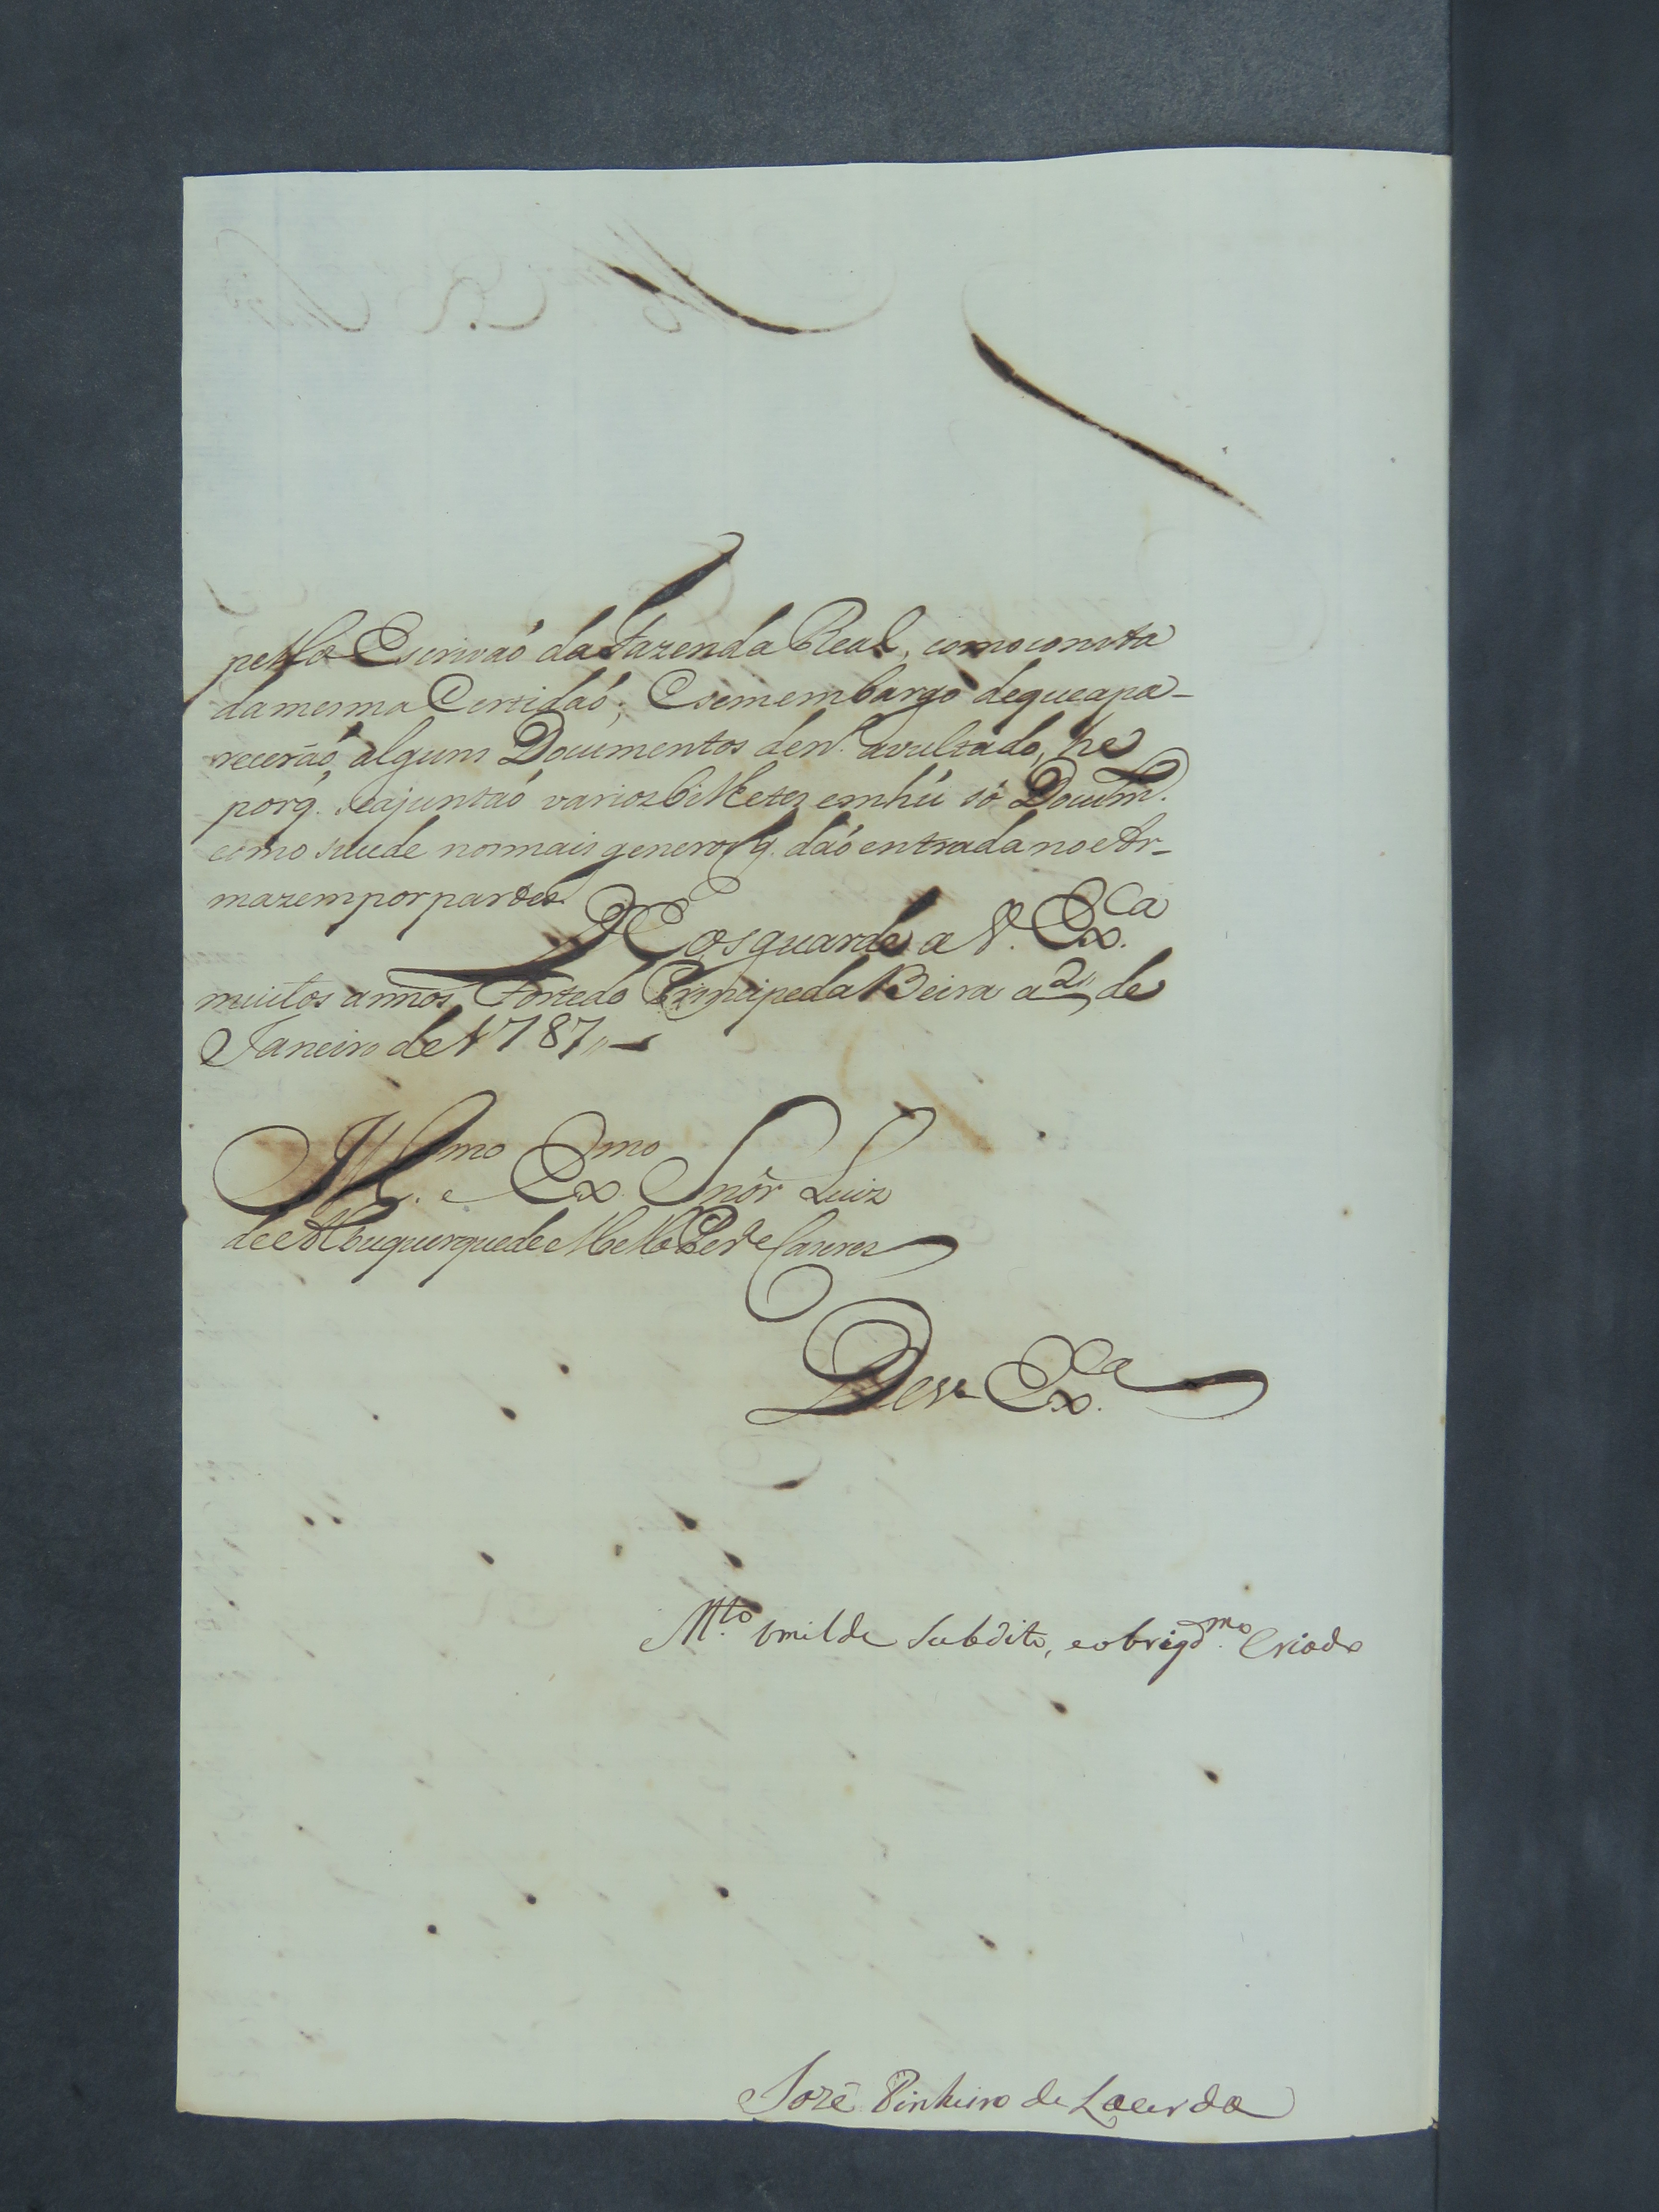 pello Escrivaõ da Fazenda Real, como consta
da mesma Certidaõ; E sem embargo de que apa-
recerão alguns Documentos de n.º avultado, he
porq. se ajuntaõ varios bilhetes em hú só Docum.
como sucede nos mais generos q. daõ entrada no Ar-
mazem por partes. Deos guarde a V. Ex.ca
muitos annos Forte do Principe da Beira a 2 de
Janeiro de 1787 //
Ill.mo e Ex.mo Snõr Luiz
de Albuquerque de Mello Per.ª e Caceres
De V. Ex.ca
M.to Umilde Subdito, e obrigd.mo Criado
José Pinheiro de Lacerda